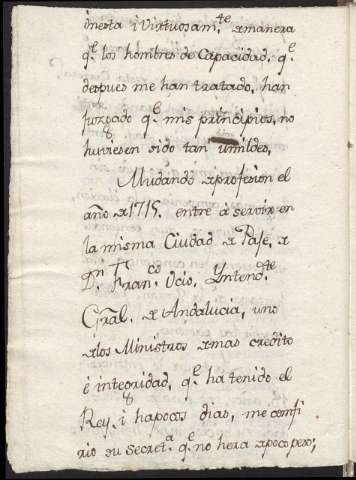 onesta i virtuosam.te de manera
q.e los hombres de Capacidad, q.e
despues me han tratado, han
juzgado q.e mis principios, no
huviesen sido tan umildes,
Mudando de profesion el
año de 1715. entre á servir en
la misma Ciudad de Paje, de
D.n Fran.co Ocio, Yntend.te
Gral. de Andalucia, uno
de los Ministros de mas credito
é integridad, q.e há tenido el
Rey, i hapocos dias, me confi
rio su Secret.a q.e no hera de poco peso;